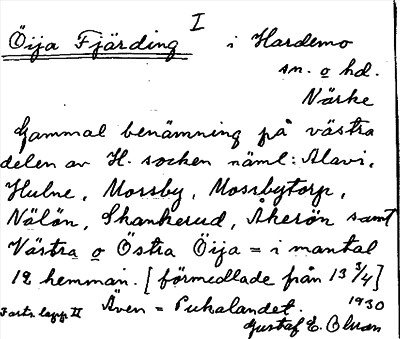 I
Öija Fjärding i Hardemo
sn. o hd.
Närke
Gammal benämning på västra
delen av H. socken näml: Alavi,
Hulne, Mossby, Mossbytorp,
Nälön, Skankerud, Åkerön samt
Västra o Östra Öija = i mantal
12 hemman. [förmedlade från 13 3/4]
Forts. lapp II Även = Pukalandet. 1930
Gustaf E. Olsson